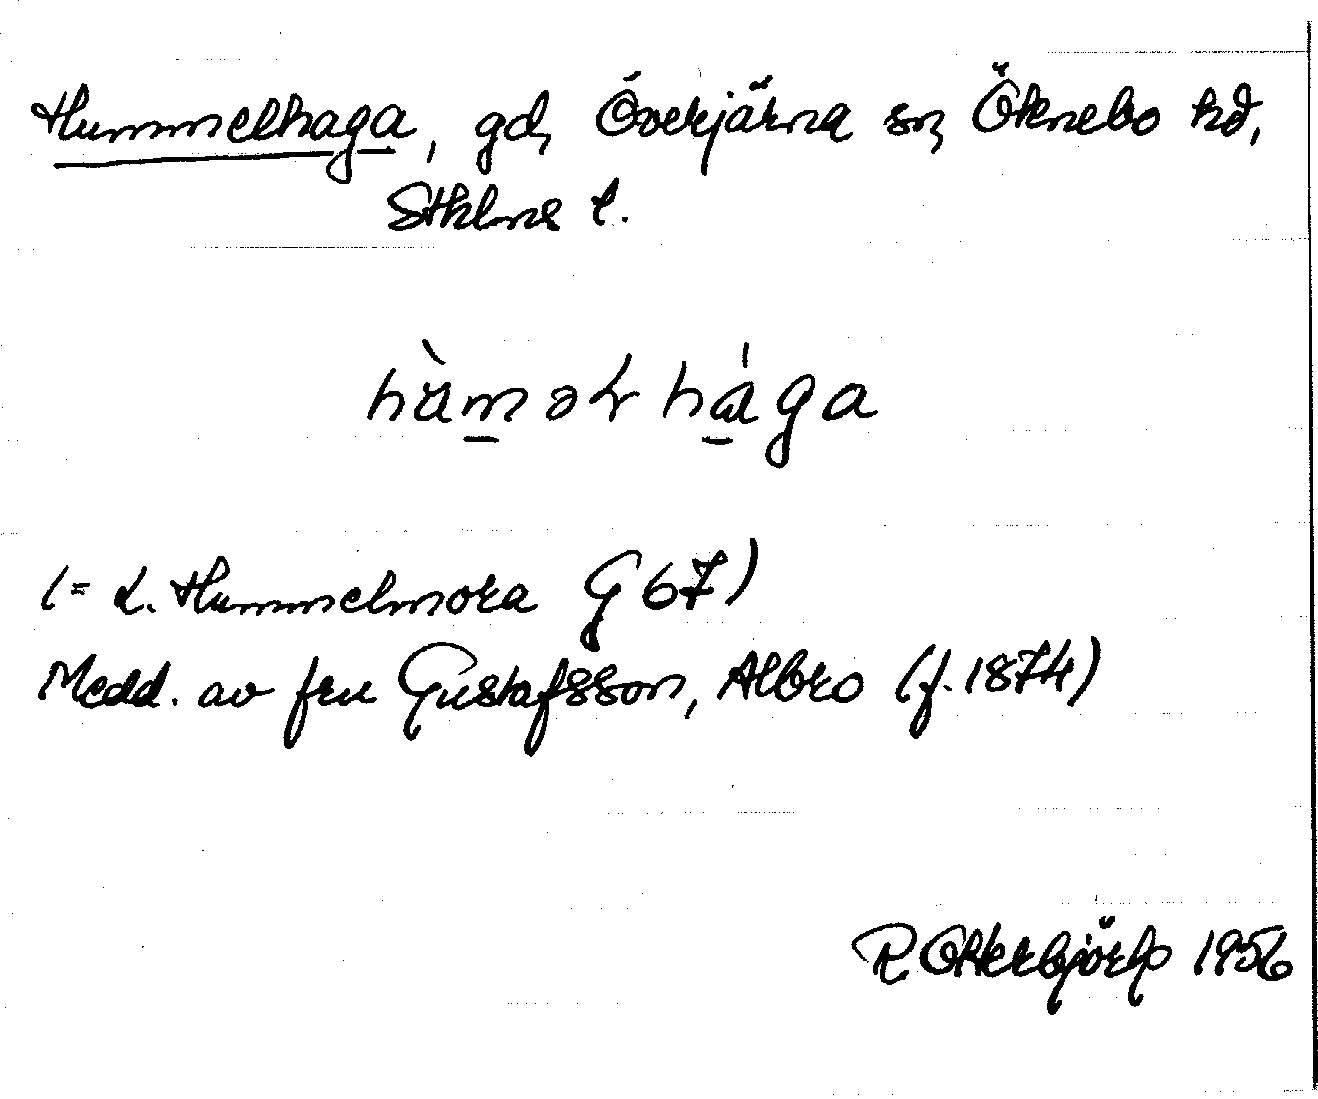 Hummelhaga, gd, Överjärna sn, Öknebo hd,
Sthlms l.
hùmər hága
(= L. Hummelmora G 67)
Medd. av fru Gustafsson, Albro (f. 1874)
R Otterbjörk 1956